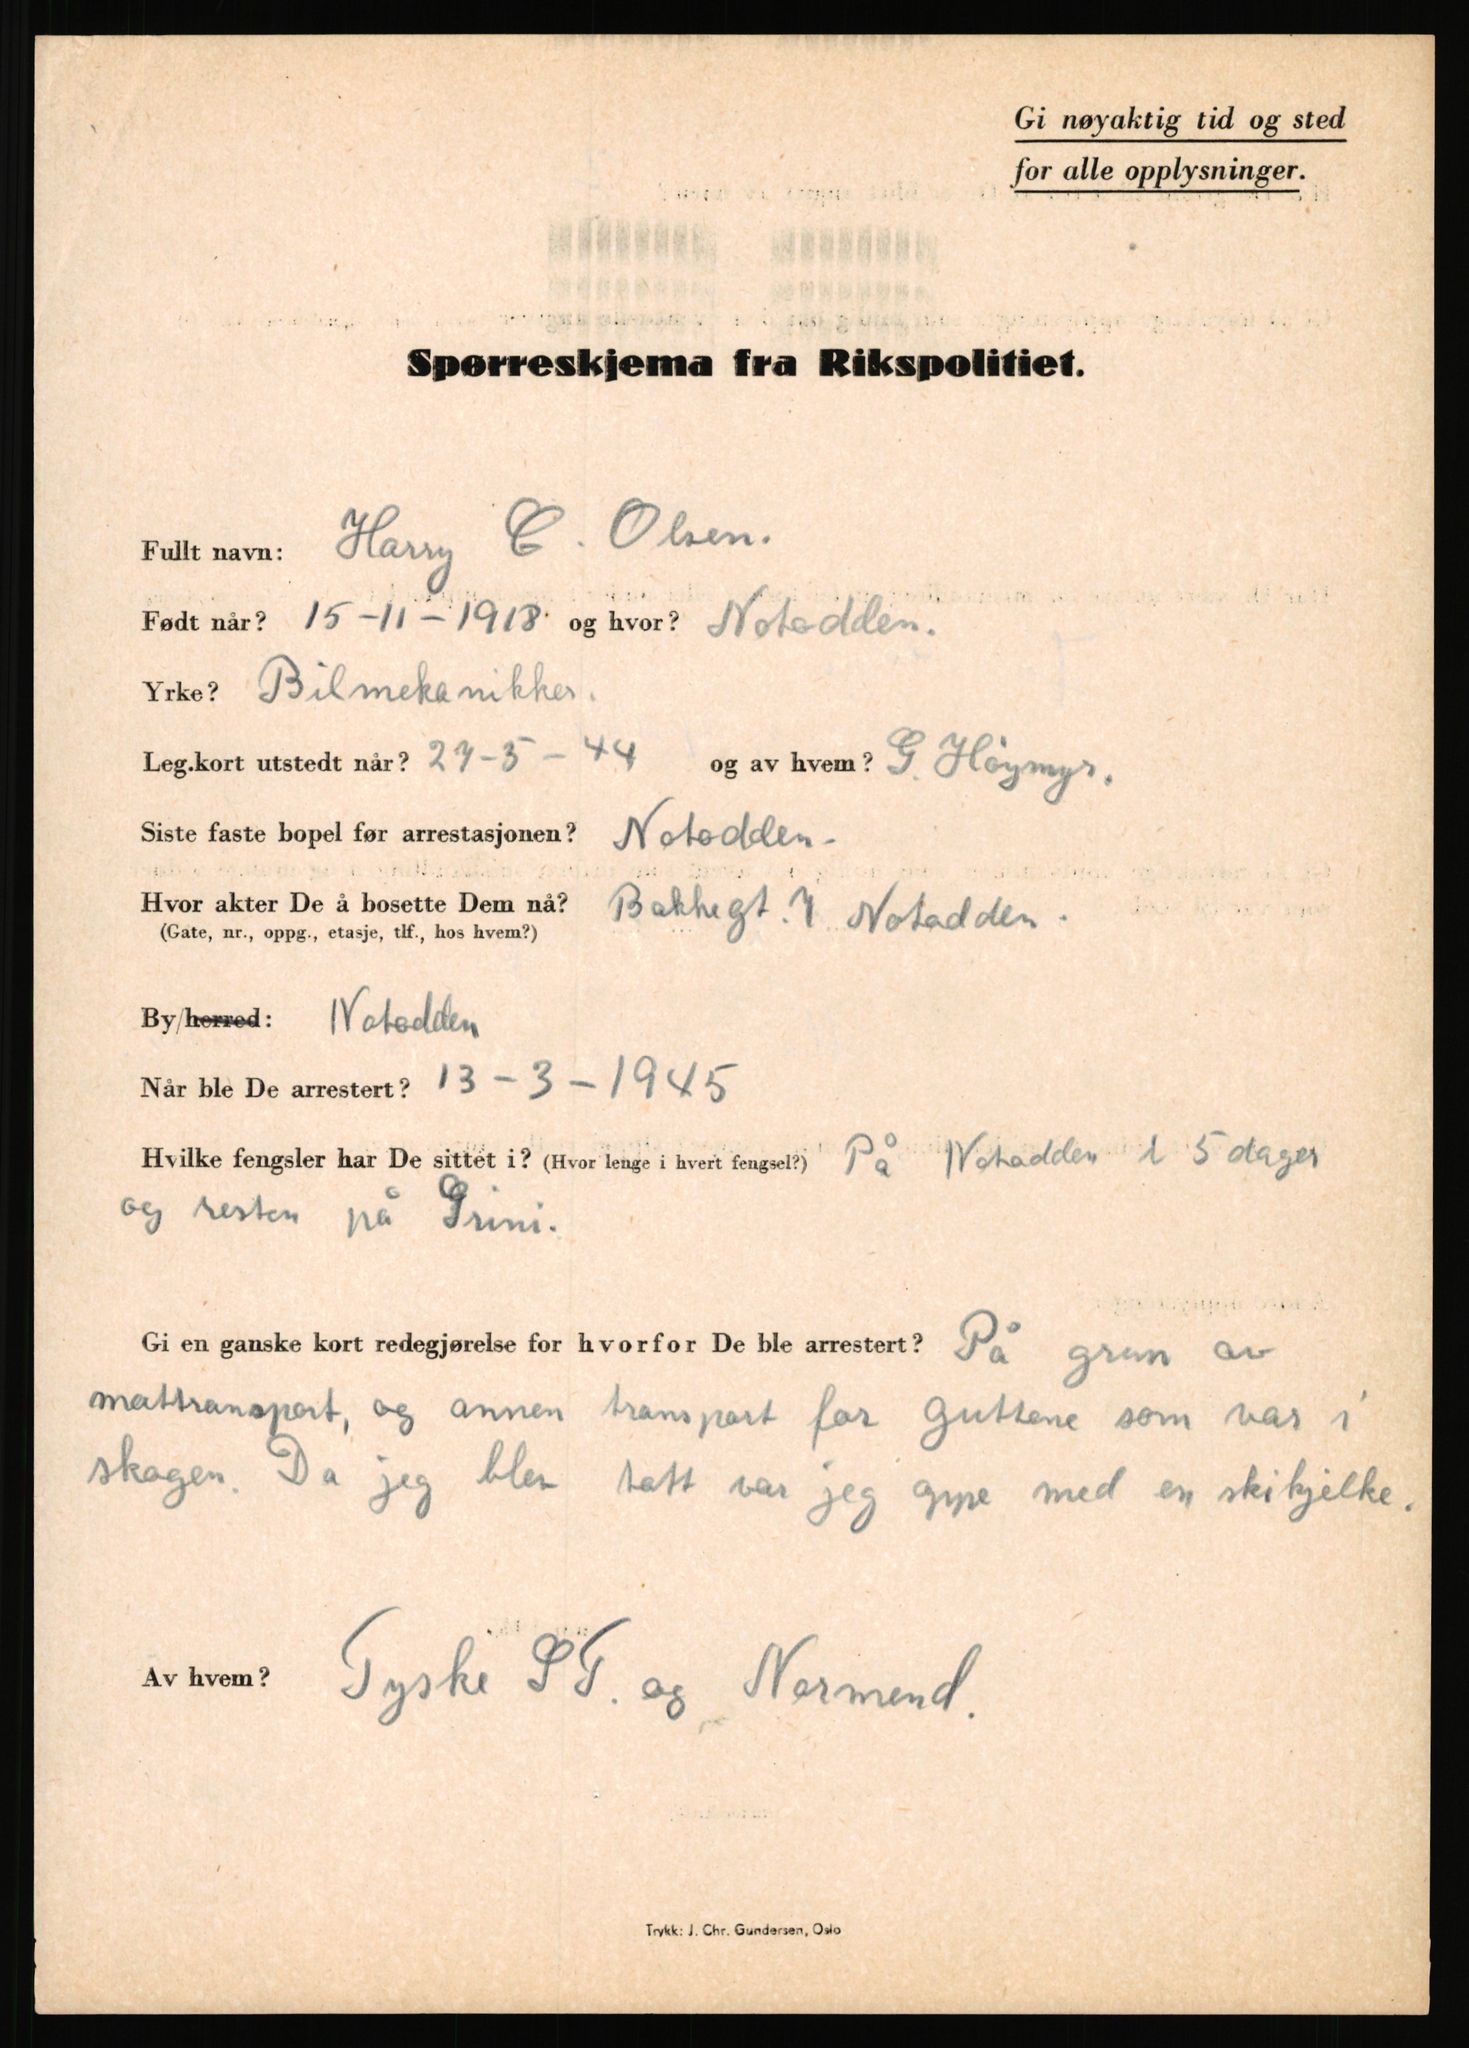 Gi nøyaktig tid og sted
for alle opplysninger.
Spørreskjema fra Rikspolitiet.
Fullt navn: Harry C. Olsen.
Født når? 15-11-1918 og hvor? Notodden.
Yrke? Bilmekanikker.
Leg.kort utstedt når? 27-5-44 og av hvem? G. Höymyr.
Siste faste bopel før arrestasjonen? Notodden.
Hvor akter De å bosette Dem nå? Bakkegt. 7 Notodden.
(Gate, nr., oppg., etasje, tlf., hos hvem?)
By/herred: Notodden
Når ble De arrestert? 13-3-1945
Hvilke fengsler har De sittet i? (Hvor lenge i hvert fengsel?) På Notodden i 5 dager
og resten på Grini.
Gi en ganske kort redegjørelse for hvorfor De ble arrestert? På grun av
mattransport, og annen transport for guttene som var i
skogen. Da jeg blev tatt var jeg oppe med en skikjelke.
Av hvem? Tyske og Normend.
Trykk: J. Chr. Gundersen, Oslo